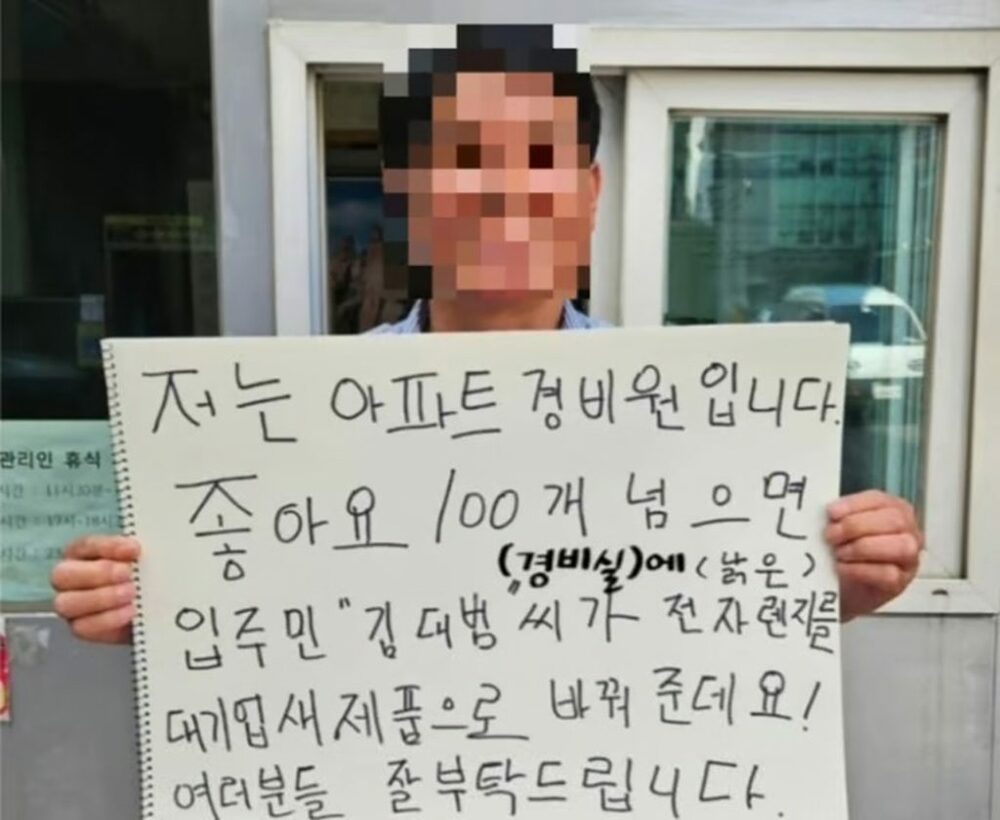 관리인 휴식
저는 아파트 경비원입니다.
좋아요 100개 넘으면
(경비실)에 (낡은)
입주민 "김대범" 씨가 전자렌지를
대기업새제품으로 바꿔 준데요!
여러분들 잘부탁드립니다.